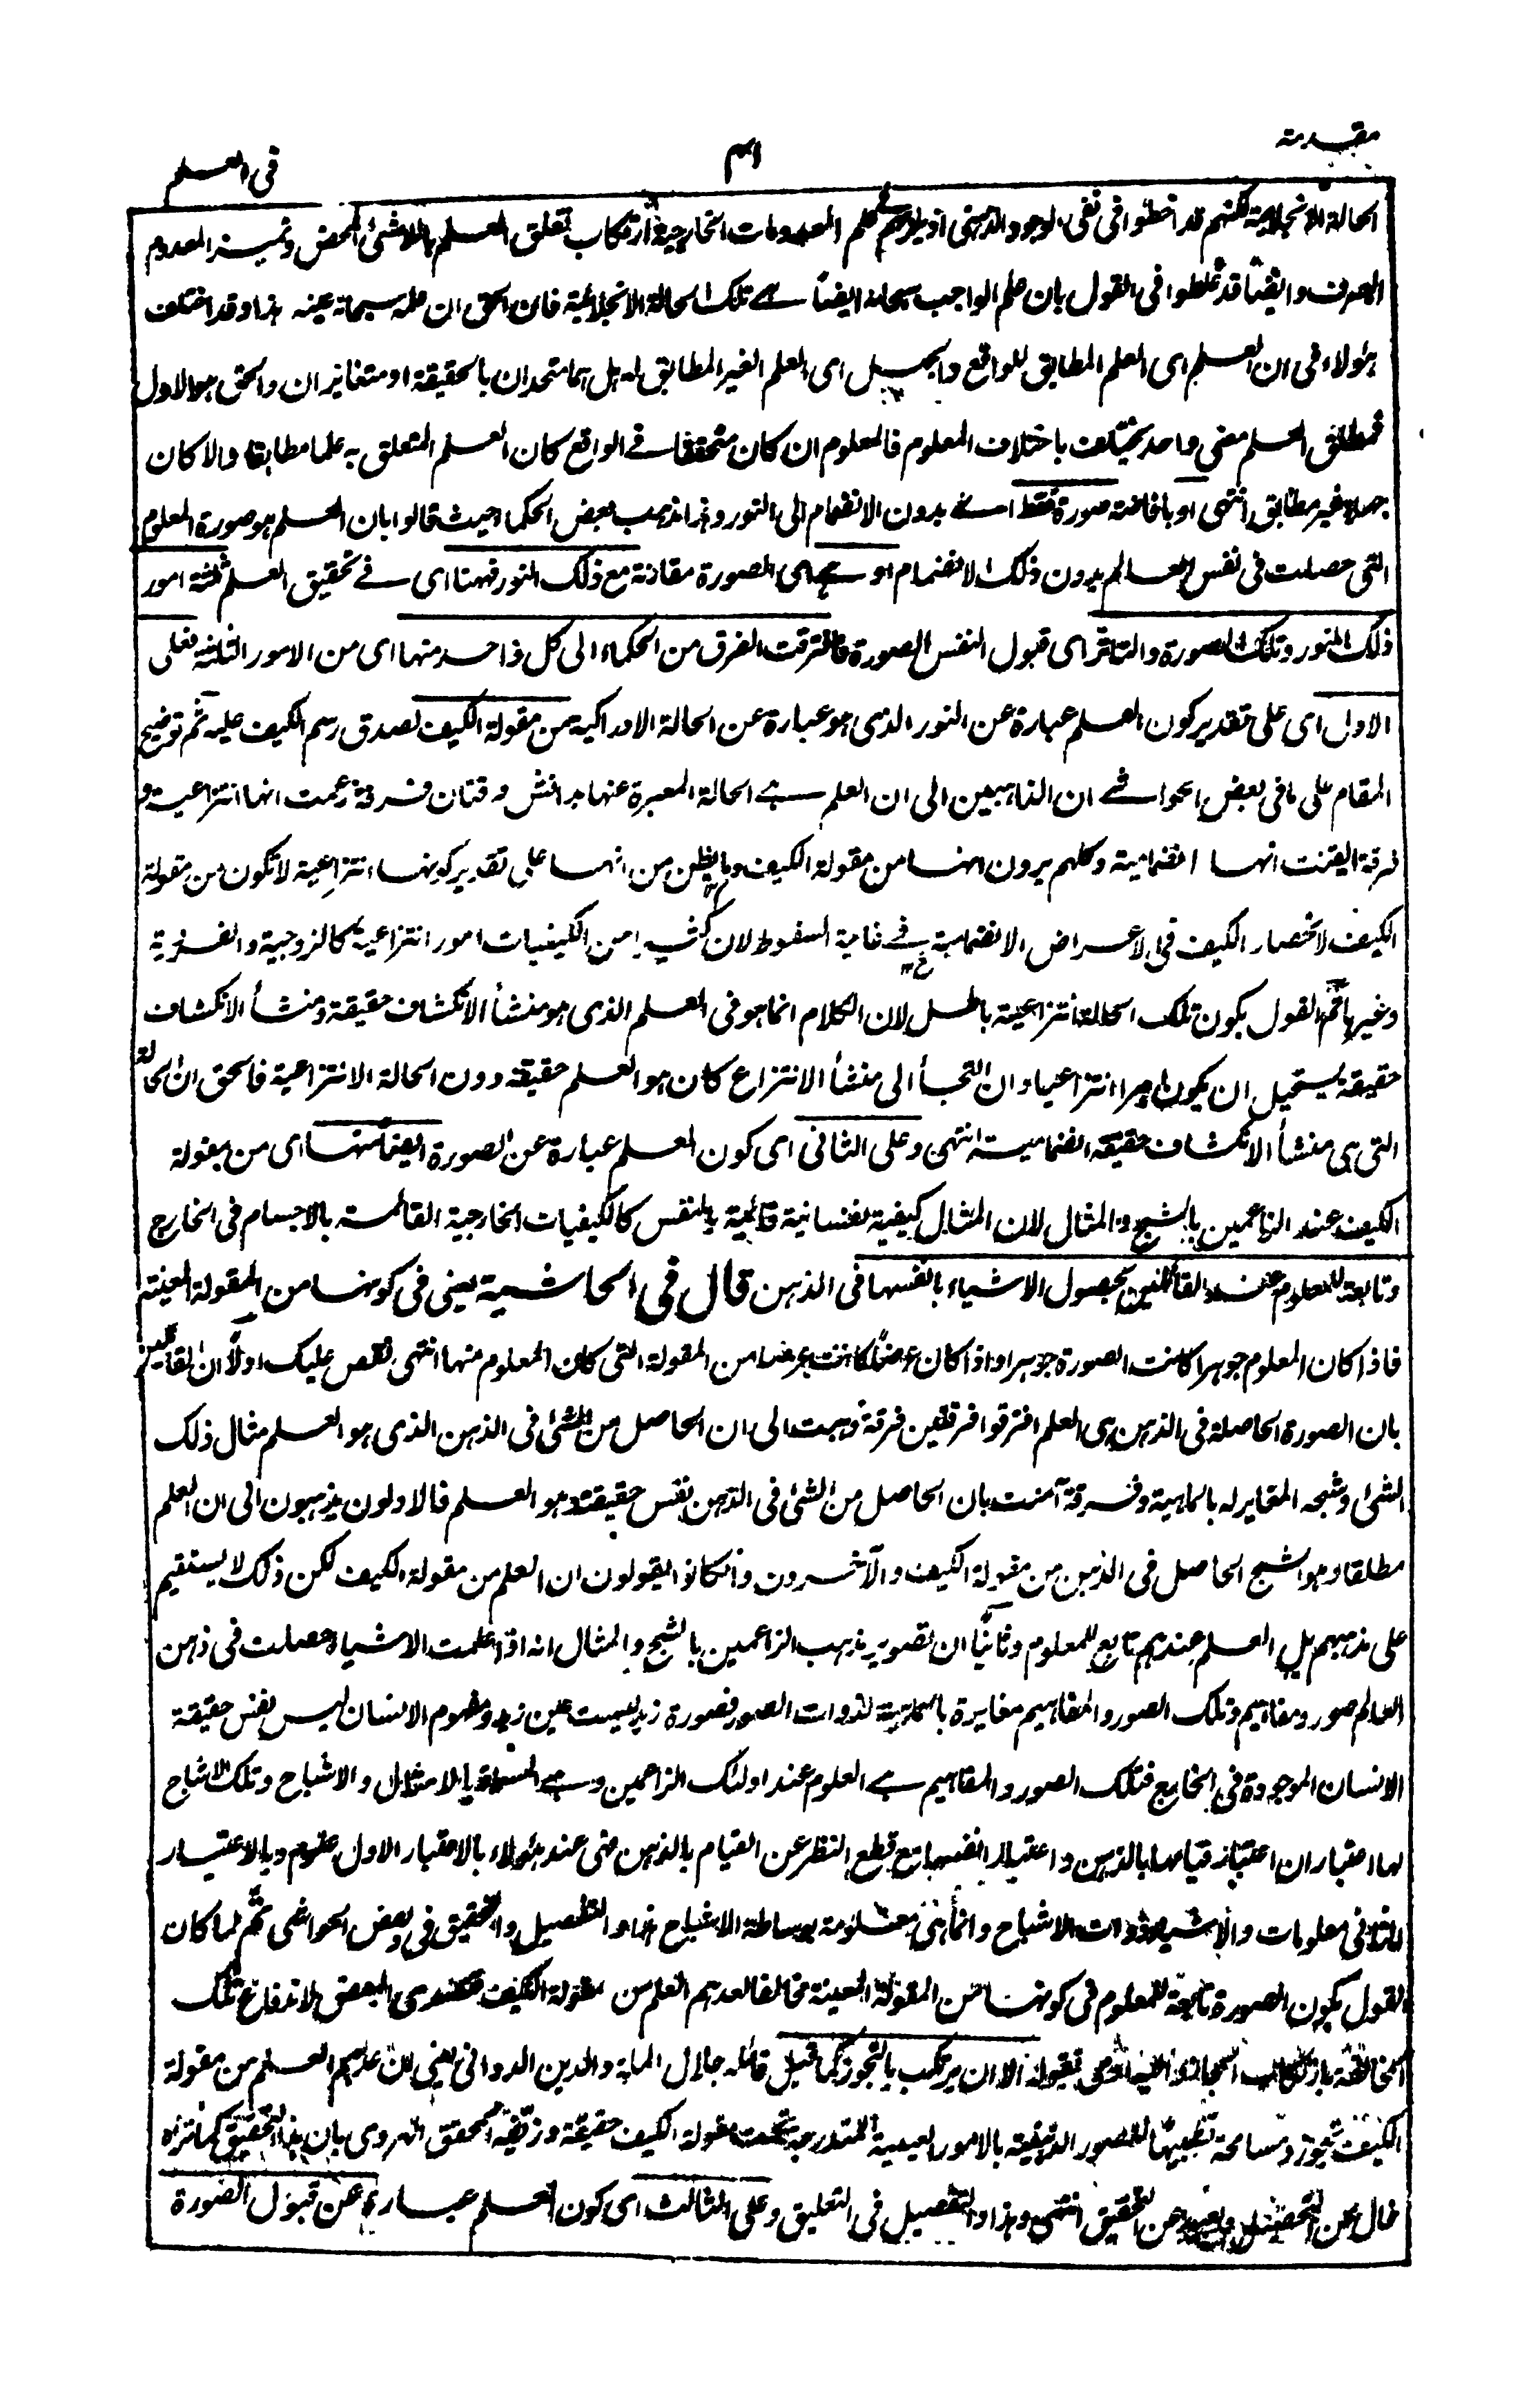 مقدمة
٤١
فى العلم
الحالة الانجلائية لكنهم قد اخطئوا فى نفى الوجود الذهنى اذ يلزمهم فى علم المعدومات الخارجية ارتكاب تعلق العلم باللاشئ المحض وتميز المعدوم
الصرف وايضًا قد غلطوا فى القول بان علم الواجب سبحانه ايضًا هى تلك الحالة الانجلائية فان الحق ان علمه سبحانه عينه هذا وقد اختلف
هؤلاء فى ان العلم اى العلم المطابق للواقع والجهل اى العلم الغير المطابق له هل هما متحدان بالحقيقة او متغائران والحق هو الاول
فمطلق العلم معنى واحد يختلف باختلاف المعلوم فالمعلوم ان كان متحققا فى الواقع كان العلم المتعلق به علما مطابقا والا كان
جهلا غير مطابق انتهى او بافاضة صورة فقط اى بدون الانضمام الى النور وهذا مذهب بعض الحكماء حيث قالوا بان العلم هو صورة المعلوم
التى حصلت فى نفس العالم بدون ذلك الانضمام او هى اى الصورة مقارنة مع ذلك النور فههنا اى فى تحقيق العلم ثلثة امور
ذلك النور وتلك الصورة والتاثر اى قبول النفس الصورة فافترقت الفرق من الحكماء الى كل واحد منها اى من الامور الثلثة فعلى
الاول اى على تقدير كون العلم عبارة عن النور الذى هو عبارة عن الحالة الادراكية من مقولة الكيف لصدق رسم الكيف عليه ثم توضيح
المقام على ما فى بعض الحواشى ان الذاهبين الى ان العلم هى الحالة المعبرة عنها بدانش فرقتان فرقة زعمت انها انتزاعية و
فرقة ايقنت انها انضمامية وكلهم يرون انها من مقولة الكيف وما يظن من انها على تقدير كونها انتزاعية لا تكون من مقولة
الكيف لانحصار الكيف فى الاعراض الانضمامية فى غاية السقوط لان كثيرا من الكيفيات امور انتزاعية كالزوجية والفردية
وغيرها ثم القول بكون تلك الحالة انتزاعية باطل لان الكلام انما هو فى العلم الذى هو منشأ الانكشاف حقيقة ومنشأ الانكشاف
حقيقة يستحيل ان يكون امرا انتزاعيا وان التجأ الى منشأ الانتزاع كان هو العلم حقيقة دون الحالة الانتزاعية فالحق ان الحالة
التى هى منشأ الانكشاف حقيقة انضمامية انتهى وعلى الثانى اى كون العلم عبارة عن الصورة ايضًا منها اى من مقولة
الكيف عند الزاعمين بالشبح والمثال لان المثال كيفية نفسانية قائمة بالنفس كالكيفيات الخارجية القائمة بالاجسام فى الخارج
وتابعة للمعلوم عند القائلين بحصول الاشياء بانفسها فى الذهن قال فى الحاشية يعنى فى كونها من المقولة المعينة
فاذا كان المعلوم جوهرا كانت الصورة جوهرا واذا كان عرضًا كانت عرضا من المقولة التى كان المعلوم منها انتهى نقص عليك اولًا ان القائلين
بان الصورة الحاصلة فى الذهن هى العلم افترقوا فرقتين فرقة ذهبت الى ان الحاصل من الشئ فى الذهن الذى هو العلم مثال ذلك
الشئ وشبحه المغاير له بالماهية وفرقة آمنت بان الحاصل من الشئ فى الذهن نفس حقيقته وهو العلم فالاولون يذهبون الى ان العلم
مطلقا وهو الشبح الحاصل فى الذهن من مقولة الكيف والآخرون وان كانوا يقولون ان العلم من مقولة الكيف لكن ذلك لا يستقيم
على مذهبهم بل العلم عندهم تابع للمعلوم وثانيًا ان تصوير مذهب الزاعمين بالشبح والمثال انه اذا علمت الاشياء حصلت فى ذهن
العالم صور ومفاهيم وتلك الصور والمفاهيم مغايرة بالماهية لذوات الصور فصورة زيد ليست عين زيد ومفهوم الانسان ليس نفس حقيقة
الانسان الموجودة فى الخارج فتلك الصور والمفاهيم هى العلوم عند اولئك الزاعمين وهى المسماة بالامثال والاشباح وتلك الاشباح
لها اعتباران اعتبار قيامها بالذهن واعتبار انفسها مع قطع النظر عن القيام بالذهن فهى عند هؤلاء بالاعتبار الاول علوم وبالاعتبار
الثانى معلومات والاشياء ذوات الاشباح وانما هى معلومة بوساطة الاشباح هذا والتفصيل والتحقيق فى بعض الحواشى ثم لما كان
القول بكون الصورة تابعة للمعلوم فى كونها من المقولة المعينة مخالفا لعدهم العلم من مقولة الكيف تصدى البعض لاندفاع تلك
المخالفة بارتكاب المجاز بقوله الا ان يرتكب بالتجوز كما قيل قائله جلال الملة والدين الدوانى يعنى ان عدهم العلم من مقولة
الكيف تجوز ومسامحة تشبيها للصور الذهنية بالامور العينية المندرجة تحت مقولة الكيف حقيقة وزيفه المحقق الهروى بان هذا التحقيق كما تراه
خال عن التحصيل وبعيد عن التحقيق انتهى وهذا والتفصيل فى التعليق وعلى الثالث اى كون العلم عبارة عن قبول الصورة